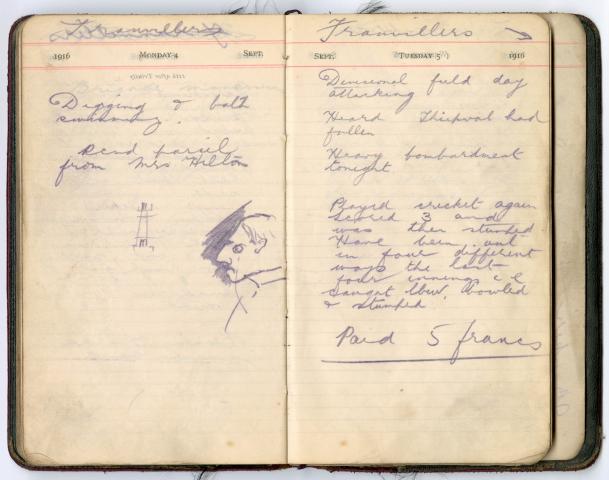 Franvillers
1916 MONDAY 4 SEPT.
Digging & bath
swimming.
Recd parcel
from Mrs Hilton
Franvillers
SEPT. TUESDAY 5 1916
Divisional field day
attacking
Heard Thiepval had
fallen
Heavy bombardment
tonight
Played cricket again
scored 3 and
was then stumped
Have been out
in four different
ways the last
four innings i e
caught lbw, bowled
& stumped
Paid 5 francs